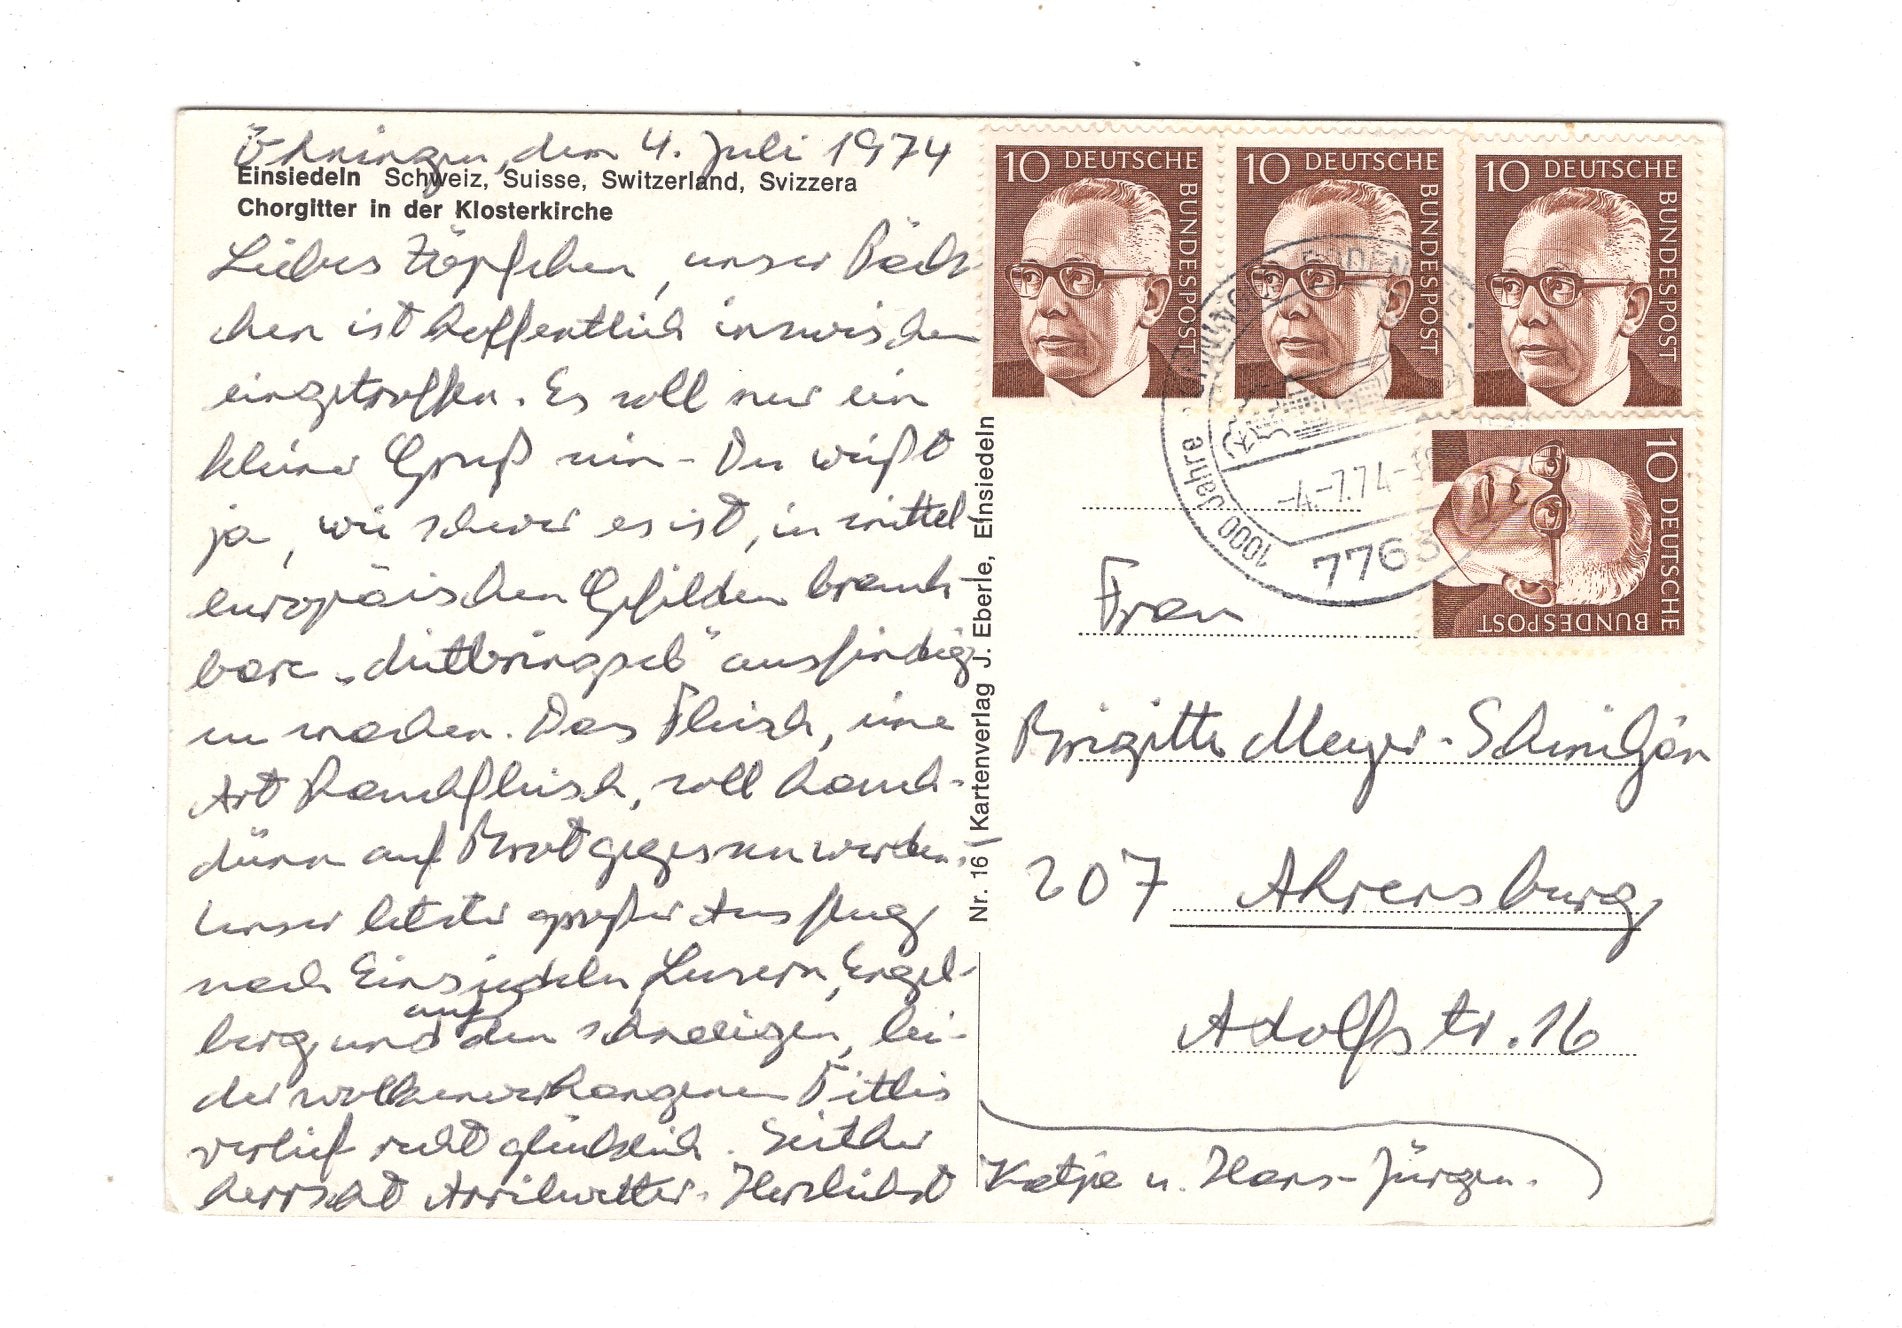 Öhningen, den 4. Juli 1974
Einsiedeln Schweiz, Suisse, Switzerland, Svizzera
Chorgitter in der Klosterkirche
Liebes Zöpfchen, unser Päck-
chen ist hoffentlich inzwischen
eingetroffen. Es soll nur ein
kleiner Gruß sein - Du weißt
ja, wie schwer es ist, in mittel-
europäischen Gefilden brauch-
bare „Mitbringsel" ausfindig
zu machen. Das Fleisch, eine
Art Rauchfleisch, soll hauch-
dünn auf Brot gegessen werden.
Unser letzter großer Ausflug
nach Einsiedeln, Luzern, Engel-
berg und auf den schneeigen, lei-
der wolkenverhangenen Titlis
verlief recht glücklich. Seither
herrscht Aprilwetter. Herzlichst
Katja u. Hans-Jürgen.
Nr. 16 Kartenverlag J. Eberle, Einsiedeln
10 DEUTSCHE BUNDESPOST
10 DEUTSCHE BUNDESPOST
10 DEUTSCHE BUNDESPOST
10 DEUTSCHE BUNDESPOST
1000 Jahre
-4.-7.74-
7763
Frau
Brigitte Meyer-
207 Ahrensburg
Adolfstr. 16